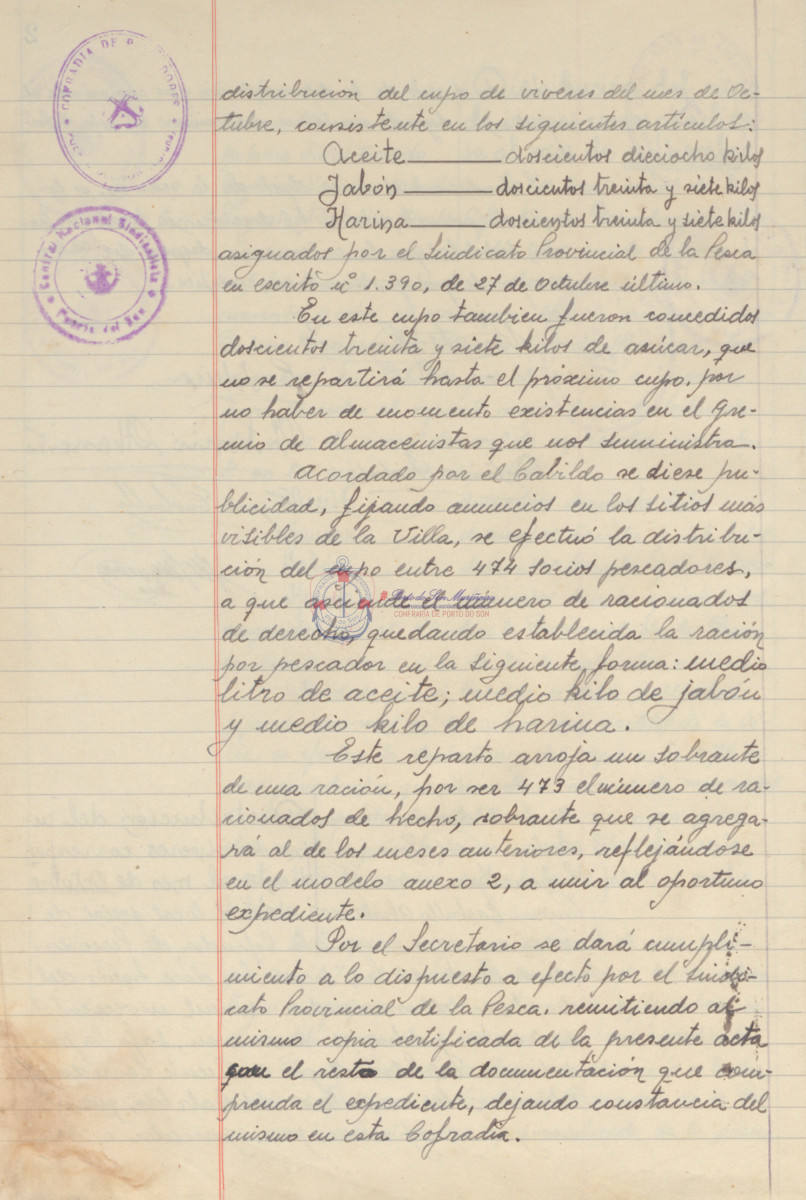 COFRADIA DE
Central Nacional Sindicalista
Puerto del Son
distribución del cupo de viveres del mes de Oc-
tubre, consistente en los siguientes artículos:
Aceite——doscientos dieciocho kilos
Jabón——doscientos treinta y siete kilos
Harina——doscientos treinta y siete kilos
asignados por el Sindicato Provincial de la Pesca
en escrito nº 1.390, de 27 de Octubre último.
En este cupo tambien fueron concedidos
doscientos treinta y siete kilos de azúcar, que
no se repartirá hasta el próximo cupo, por
no haber de momento existencias en el Gre-
mio de Almacenistas que nos suministra.
Acordado por el Cabildo se diese pu-
blicidad, fijando anuncios en los sitios más
visibles de la Villa, se efectuó la distribu-
ción del cupo entre 474 socios pescadores,
a que asciende el número de racionados
de derecho, quedando establecida la ración
CONFRARÍA DE PORTO DO SON
por pescador en la siguiente forma: medio
litro de aceite; medio kilo de jabón
y medio kilo de harina.
Este reparto arroja un sobrante
de una ración, por ser 473 el número de ra-
cionados de hecho, sobrante que se agrega-
rá al de los meses anteriores, reflejándose
en el modelo anexo 2, a unir al oportuno
expediente.
Por el Secretario se dará cumpli-
miento a lo dispuesto a efecto por el Sindi-
cato Provincial de la Pesca, remitiendo al
mismo copia certificada de la presente acta
el resto de la documentación que com-
prenda el expediente, dejando constancia del
mismo en esta Cofradía.